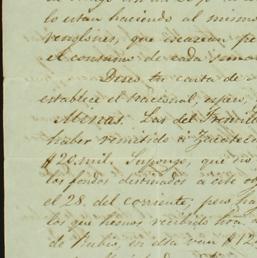 lo están haciendo al mismo
renglones, que escasean pe
el consumo de cada sema
Dice tu carta de
establece el Nacional, espero,
Minas. Las del Fresnillo
haber remitido a Zacatecas
$26 mil. Supongo, que
los fondos destinados a este ob
el 28 del corriente; pero ha
los que hemos recibido hoy
de Rubio, en ella van $12